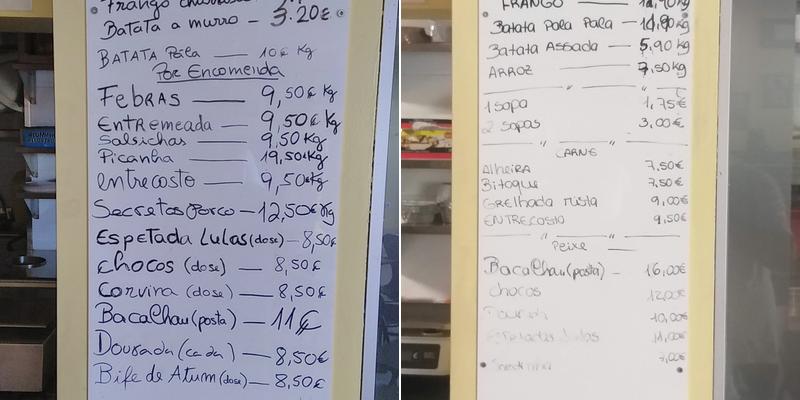 Frango churrasco
Batata a murro - 3.20€
BATATA Pála - 10€ Kg
Por Encomenda
FEBRAS - 9,50€ Kg
ENTREMEADA - 9,50€ Kg
Salsichas - 9,50 Kg
Picanha - 19,50€Kg
entrecosto - 9,50€Kg
Secretos Porco - 12,50€Kg
ESPETADA LULAS (dose) - 8,50€
chocos (dose) - 8,50€
Corvina (dose) - 8,50€
Bacalhau (posta) - 11€
Dourada (cada) - 8,50€
Bife de Atum (dose) - 8,50€
FRANGO -
Batata Pala Pala -
Batata Assada - 5,90 Kg
ARROZ - 7,50 kg
1 sopa 1,75€
2 sopas 3,00€
CARNE
Alheira 7,50€
Bitoque 7,50€
Grelhada mista 9,00€
ENTRECOSTO 9,50€
Peixe
Bacalhau (posta) - 16,00€
chocos 12,00€
10,00€
11,00€
7,00€